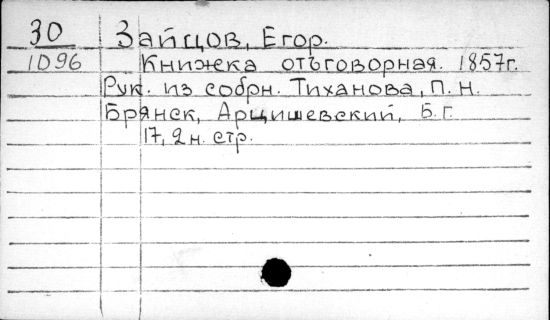 30 Зайцов, Егор.
1096 Книжка отъговорная. 1857г.
Рук. из собрн. Тиханова, П. Н.
Брянск, Арцишевский, Б. Г.
17, 2 н. стр.